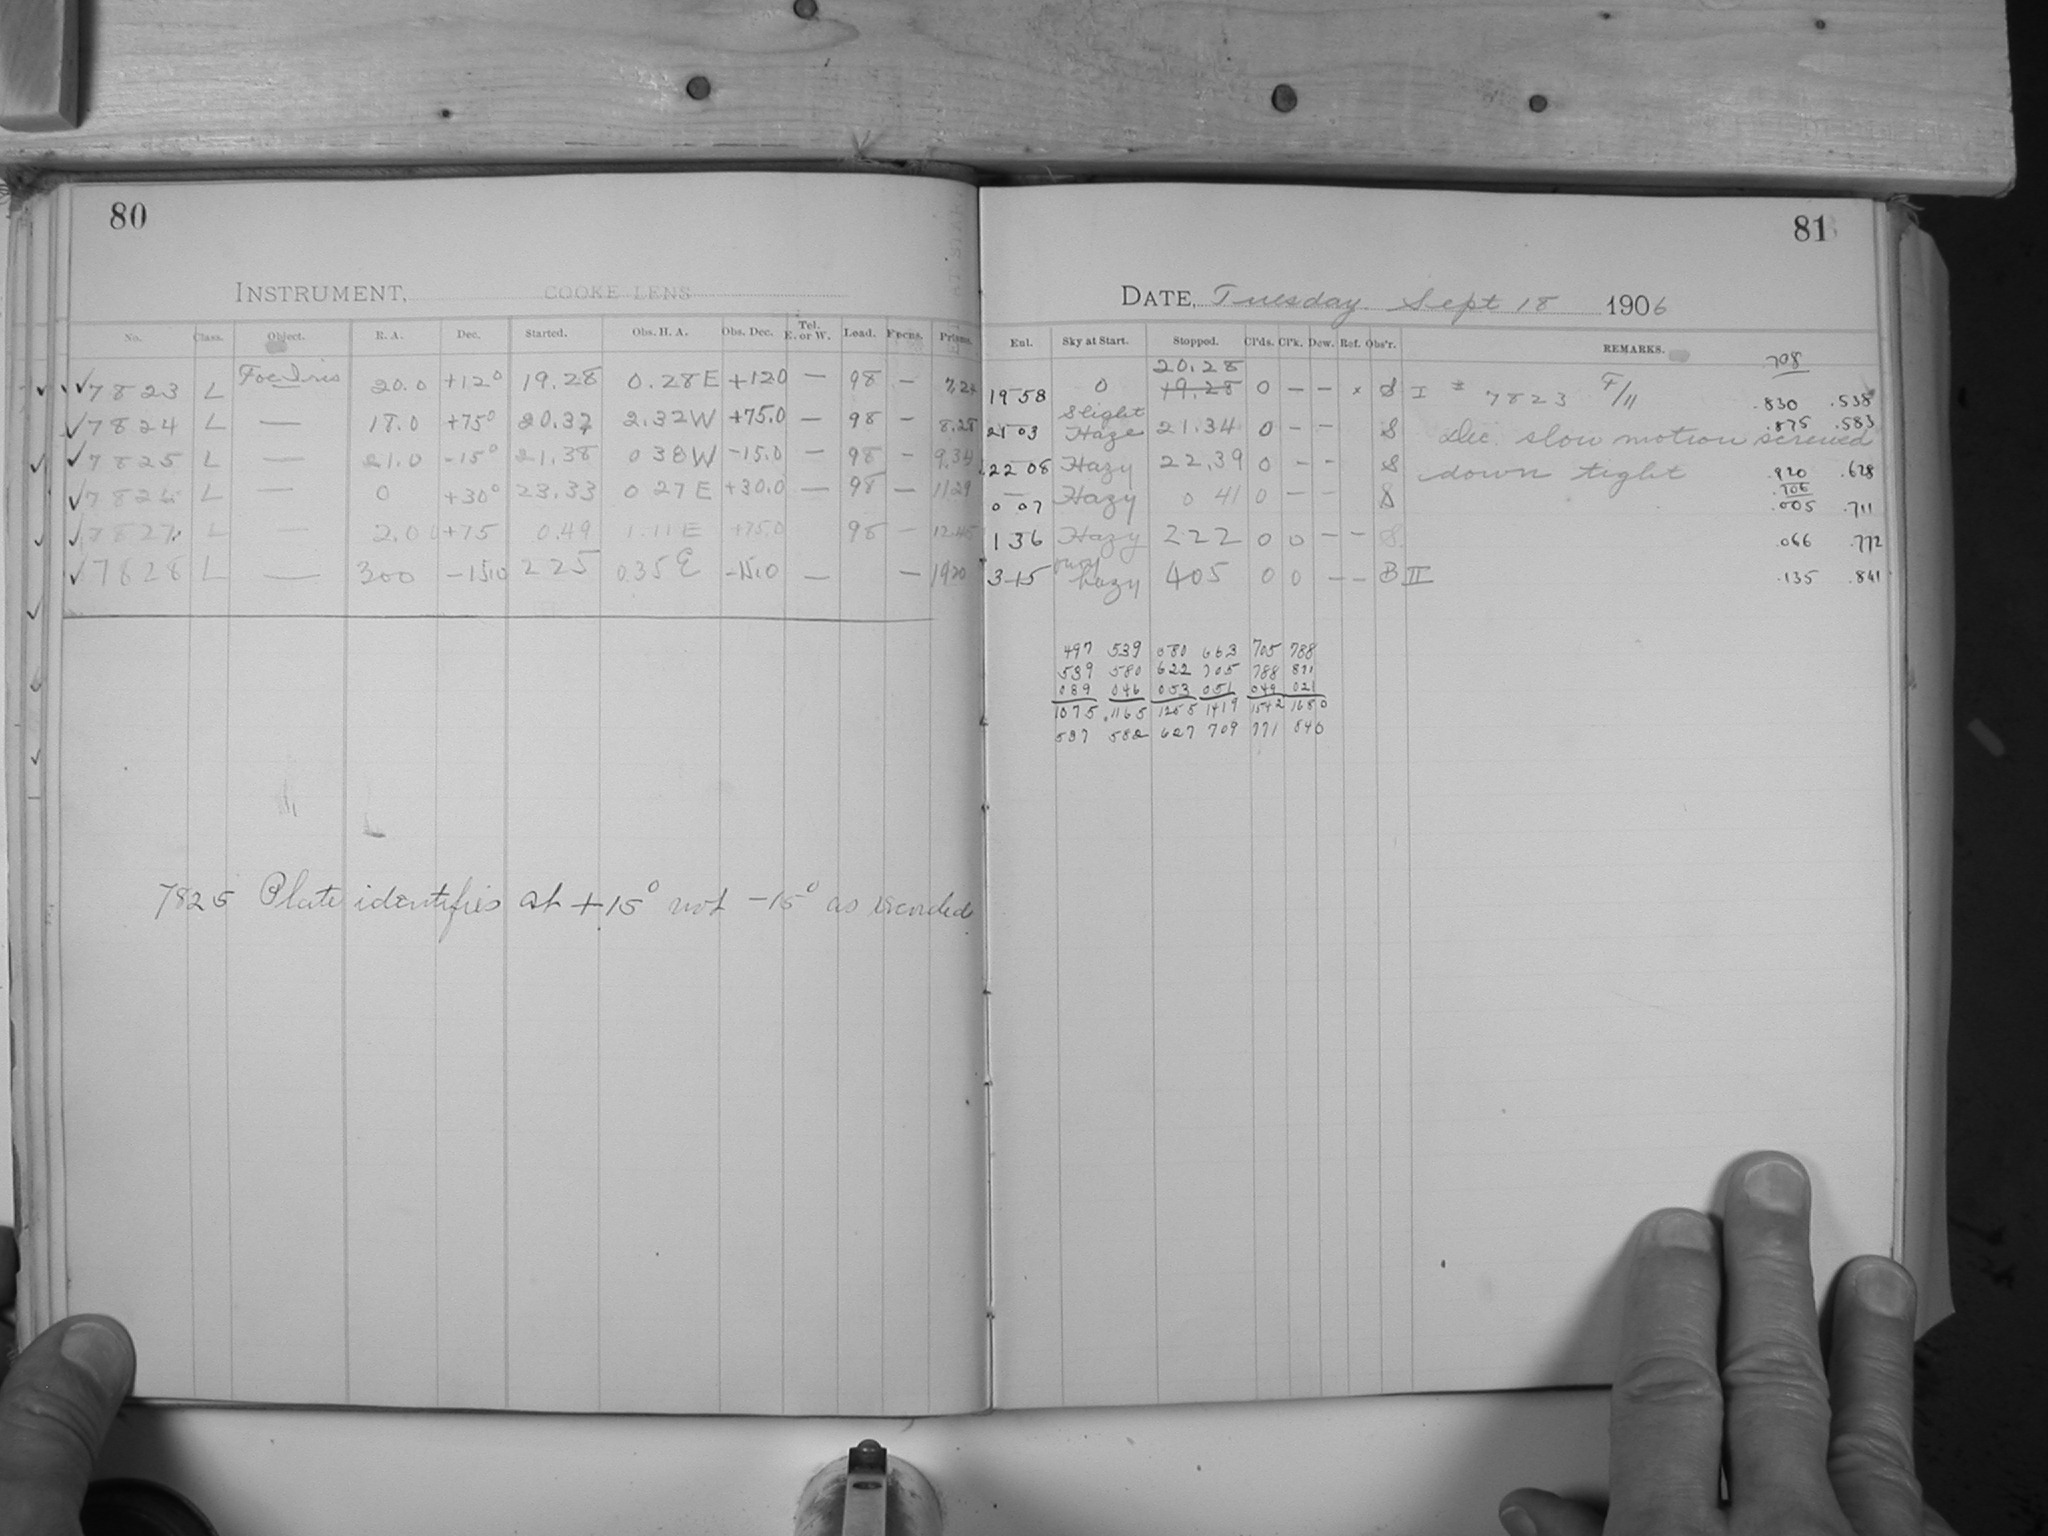 80
INSTRUMENT, COOKE LENS
No. Class. Object. R. A. Dec. Started. Obs. H. A. Obs. Dec. Tel. E. or W. Load. Focus. Prisms.
✓7823 L 20.0 +12° 19.28 0.28E +120 — 98 — 7.24
✓7824 L — 18.0 +75° 20.32 2.32W +75.0 — 98 — 8.28
✓7825 L — 21.0 -15° 21.38 038W -15.0 — 98 — 9.34
✓7826 L — 0 +30° 23.33 0 27E +30.0 — 98 — 11.29
✓7827 L — 2.0 +75 0.49 1.11E +75.0 98 — 12.45
✓7828 L — 300 -150 225 0.35E -15.0 — —
7825 Plate identifies at +15° not -15° as recorded
81
DATE, Tuesday Sept 18 1906
Exl. Sky at Start. Stopped. Cl'ds. Cl'k. Dew. Ref. Obs'r. REMARKS.
.708
20.28
19 58 0 19.28 0 — — × S I * 7823 F/11 .830 .538
21 03 Slight Haze 21.34 0 — — S Dec. slow motion screwed .875 .583
22 08 Hazy 22.39 0 — — S down tight .920 .628
.706
0 07 Hazy 0 41 0 — — S .005 .711
1 36 Hazy 222 0 0 — — S .066 .772
3 15 hazy 405 0 0 — — B II .135 .841
497 539 580 663 705 788
539 580 622 705 788 871
089 046 053 051 049 021
1075 .1165 1255 1419 1542 1680
537 582 627 709 771 840